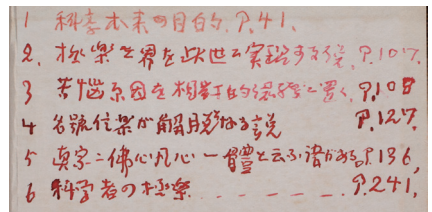 1 科学本来の目的、P.41、
2、極楽世界を此世に実現する説、P.107、
3 苦悩原因を相対的経験に置く、P.108
4 名號信楽が解脱なる説 P.127、
5 真宗ニ佛心凡心一體と云ふ語がある、P.136、
6 科学者の極楽 ------ P.241、